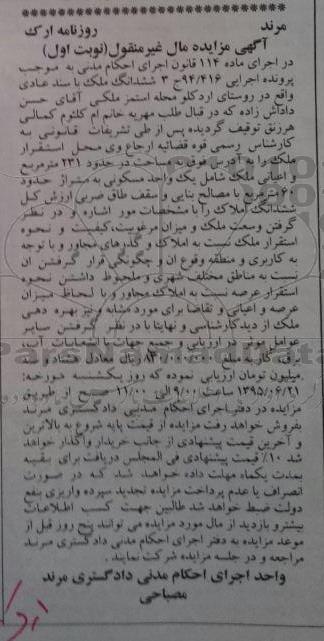 مرند روزنامه ارک
آگهی مزایده مال غیرمنقول(نوبت اول)
در اجرای ماده ۱۱۴ قانون اجرای احکام مدنی به موجب
پرونده اجرایی ۹۴/۴۱۶-ج ۳ ششدانگ ملک با سند عادی
واقع در روستای اردکلو محله استمز ملکی آقای حسن
داداش زاده که در قبال طلب مهریه خانم ام کلثوم کمالی
هرزنق توقیف گردیده پس از طی تشریفات قانونی به
کارشناس رسمی قوه قضائیه ارجاع وی محل استقرار
ملک را به آدرس فوق به مساحت در حدود ۲۳۱ مترمربع
و اعیانی ملک شامل یک واحد مسکونی به متراژ حدود
۶۰ مترمربع با مصالح بنایی و سقف طاق ضربی ارزش کل
ششدانگ املاک را با مشخصات مور اشاره و در نظر
گرفتن وسعت ملک و میزان مرغوبیت،کیفیت و نحوه
استقرار ملک نسبت به املاک و گذرهای مجاور و با توجه
به کاربری و منطقه وقوع ان و چگونگی قرار گرفتن ان
نسبت به مناطق مختلف شهری و ملحوظ داشتن نحوه
استقرار عرصه نسبت به املاک مجاور و با لحاظ میزان
عرصه و اعیانی و تقاضا برای مورد مشابه و نیز بهره دهی
ملک از دید کارشناسی و نهایتا با در نظر گرفتن سایر
عوامل موثر در ارزیابی و جمیع جهات با انشعابات آب،
برق، گاز به مبلغ ۸۳۰/۰۰۰/۰۰۰ ریال معادل هشتاد و سه
میلیون تومان ارزیابی نموده که روز یکشنبه مورخه:
۱۳۹۵/۰۶/۲۱ ساعت ۹/۰۰ الی ۱۱/۰۰ صبح از طریق
مزایده در دفتر اجرای احکام مدنی دادگستری مرند
بفروش خواهد رفت مزایده از قیمت پایه شروع به بالاترین
و آخرین قیمت پیشنهادی از جانب خریدار واگذار خواهد
شد ۱۰٪ قیمت پیشنهادی فی المجلس دریافت برای بقیه
بمدت یکماه مهلت داده خواهد شد که در صورت
انصراف یا عدم پرداخت مزایده تجدید سپرده واریزی بنفع
دولت ضبط خواهد شد طالبین جهت کسب اطلاعات
بیشتر و بازدید از مال مورد مزایده می توانند پنج روز قبل از
موعد مزایده به دفتر اجرای احکام مدنی دادگستری مرند
مراجعه و در جلسه مزایده شرکت نمایند .
واحد اجرای احکام مدنی دادگستری مرند
مصباحی